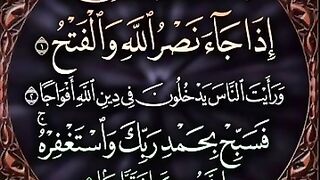 إِذَا جَآءَ نَصْرُ ٱللَّهِ وَٱلْفَتْحُ ١
وَرَأَيْتَ ٱلنَّاسَ يَدْخُلُونَ فِى دِينِ ٱللَّهِ أَفْوَاجًا ٢
فَسَبِّحْ بِحَمْدِ رَبِّكَ وَٱسْتَغْفِرْهُ ۚ